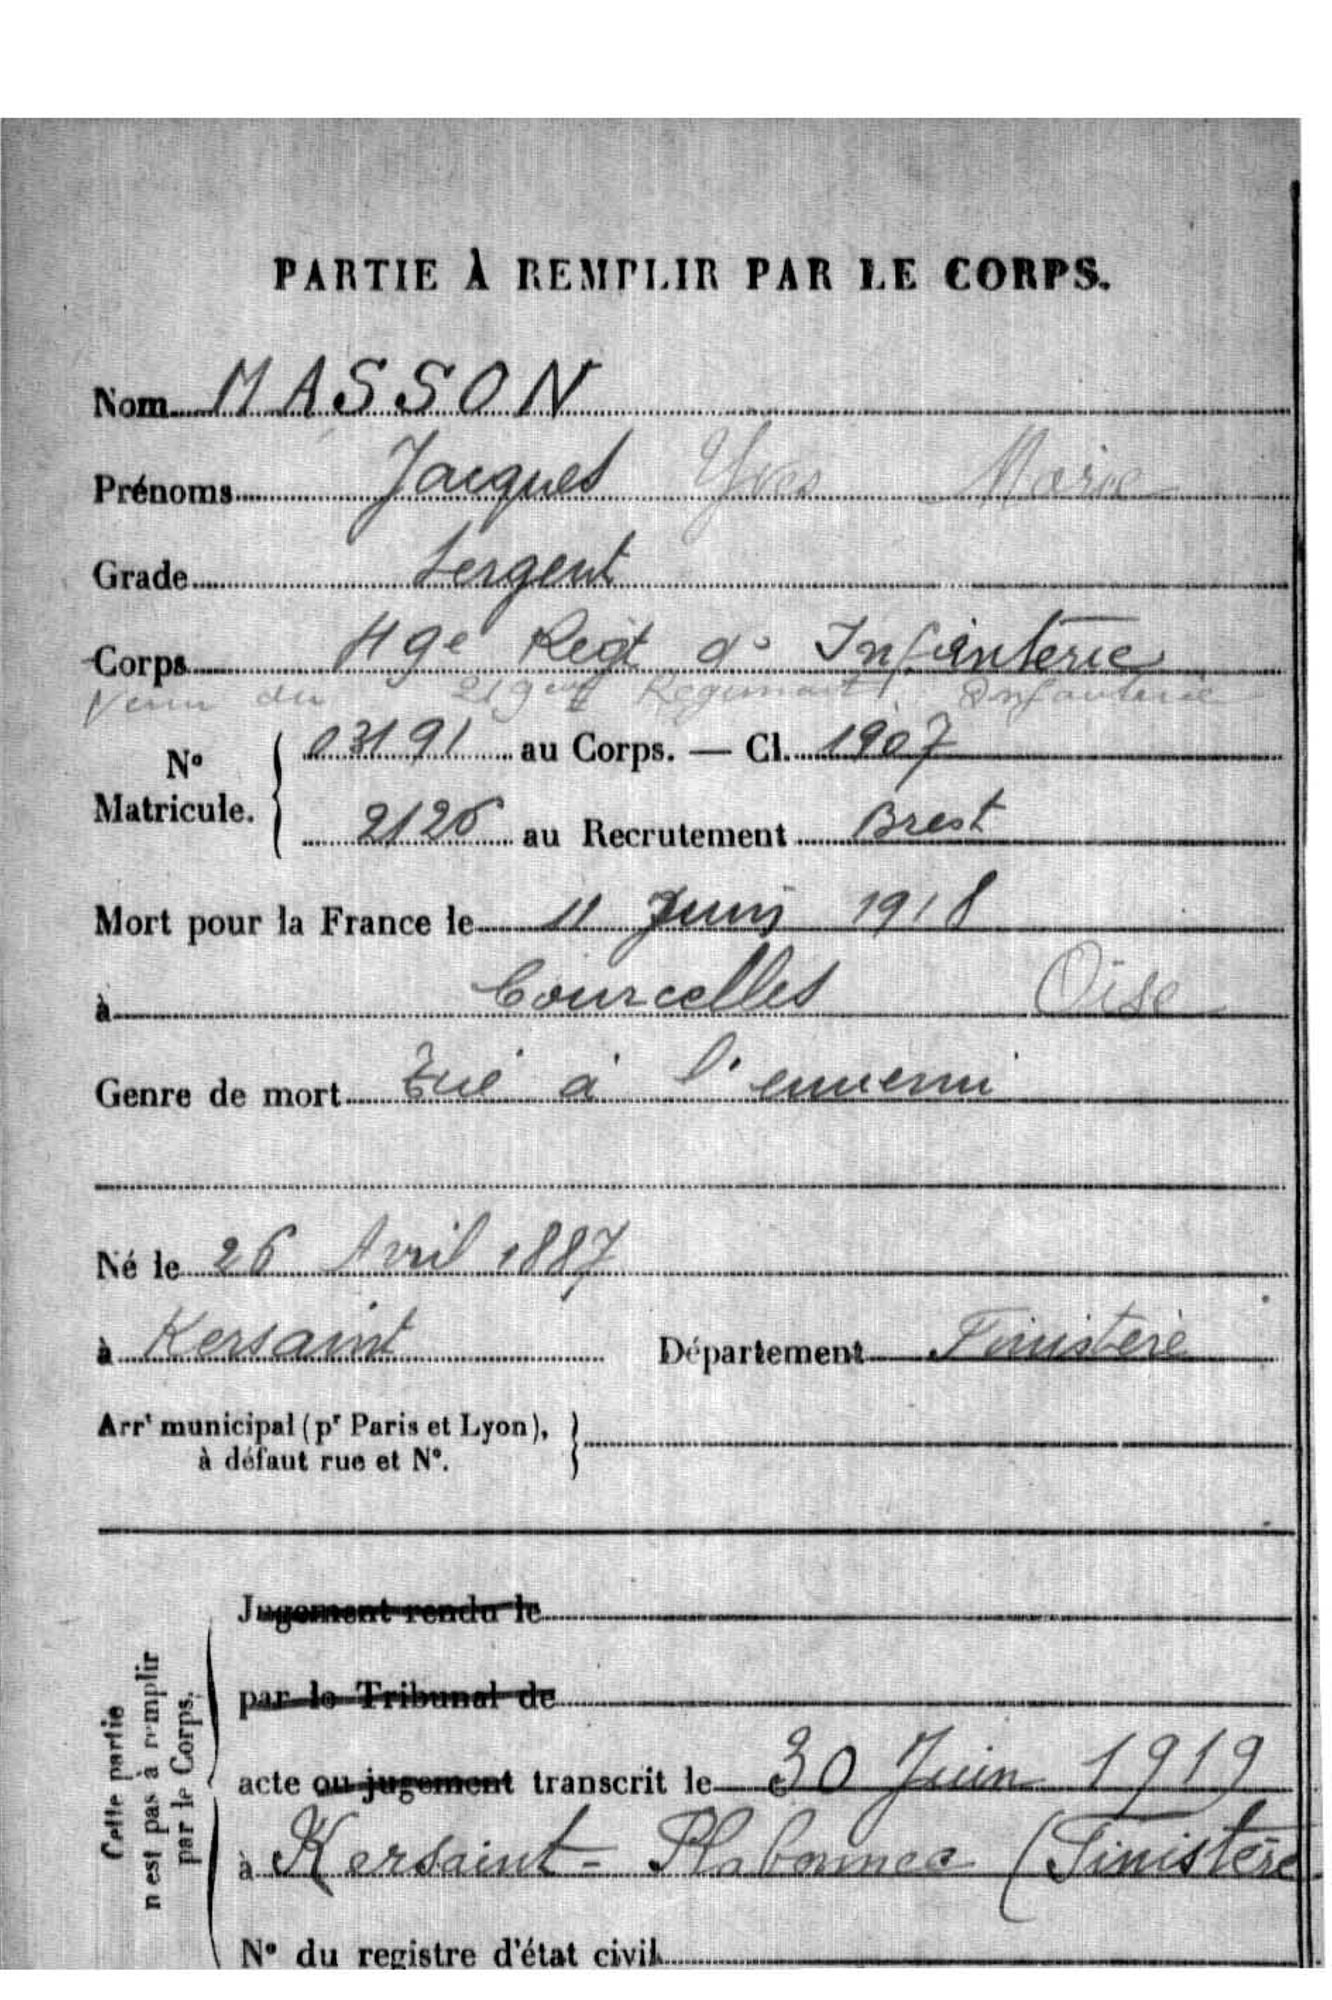 PARTIE À REMPLIR PAR LE CORPS.
Nom MASSON
Prénoms Jacques Yves Marie
Grade Sergent
Corps 49e Régt d' Infanterie
Venu du 219eme Régiment Infanterie
No Matricule. 03191 au Corps. — Cl. 1907
2126 au Recrutement Brest
Mort pour la France le 11 Juin 1918
à Courcelles Oise
Genre de mort Tué à l'ennemi
Né le 26 Avril 1887
à Kersaint Département Finistère
Arrt municipal (pr Paris et Lyon),
à défaut rue et No.
Cette partie
n'est pas à remplir
par le Corps.
Jugement rendu le
par le Tribunal de
acte ou jugement transcrit le 30 Juin 1919
à Kersaint-Plabennec (Finistère
No du registre d'état civil